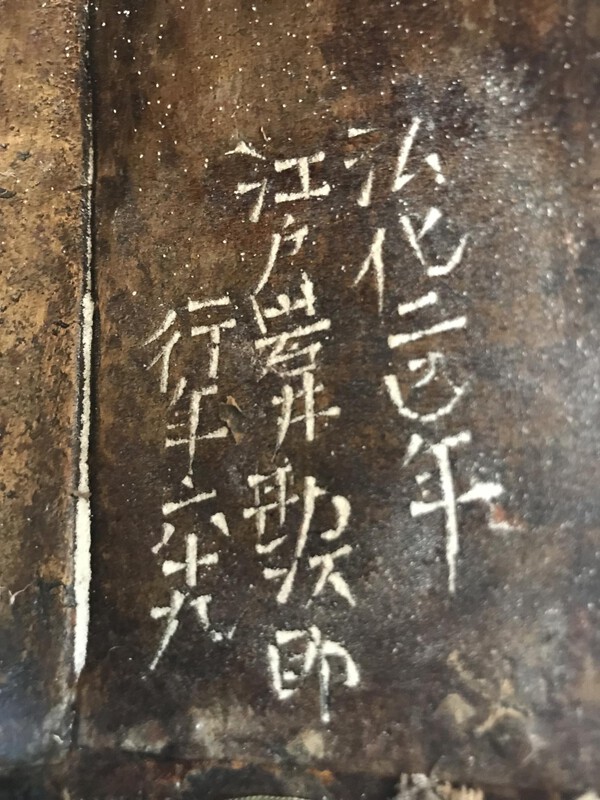 弘化二巳年
江戸岩井勘次郎
行年六十九